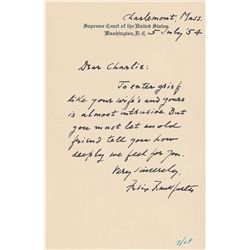 Charlemont, Mass.
Supreme Court of the United States
Washington, D. C.
5 July '54
Dear Charlie:
To enter grief
like your wife's and yours
is almost intrusion. But
you must let an old
friend tell you how
deeply we feel for you.
Very sincerely,
Felix Frankfurter
7/28